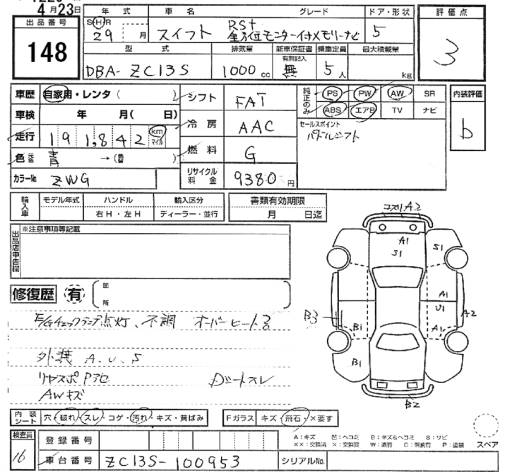 4月23日
出品番号 148
年式 車名 グレード ドア・形状 評価点
SHR 29 年 月 スイフト RSt 全方位モニター付メモリーナビ 5 3
型式 排気量 新車保証書 乗車定員 最大積載量
DBA- ZC13S 1000cc 有別記入 無 5人 kg
車歴 自家用・レンタ( ) シフト FAT 純正のみ PS PW AW SR 内装評価
車検 年 月( 日) 冷房 AAC ABS エアB TV ナビ b
走行 191,842 km マイル 燃料 G セールスポイント パドルシフト
色 青 →( ) リサイクル料金 9380円
カラーNo ZWG
輸入車 モデル年式 ハンドル 右H・左H 輸入区分 ディーラー・並行 書類有効期限 月 日迄
出品店車記録 ※注意事項等記載
修復歴 有 箇所
E/Gチェックランプ点灯、不調 オーバーヒート
外装 A.U.S
リヤスポ
AWキズ
コスリA2
A1
S1
S1
A1
U1
A1
A2
B3
B1
B1
B2
内装シート 穴・破れ・スレ・コゲ・汚れ・キズ・黄ばみ Fガラス キズ・飛石・×要す
検査員 16 登録番号
車台番号 ZC13S-100953 シリアルNo.
A:キズ 凹:ヘコミ B:キズ&ヘコミ S:サビ
スペア